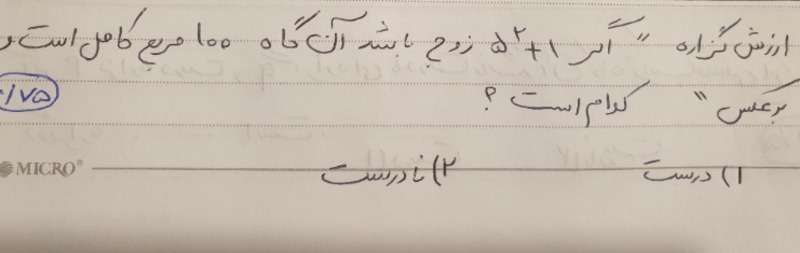 ارزش گزاره " اگر ۵^۲+۱ زوج باشد آن گاه ۱۰۰ مربع کامل است و
برعکس " کدام است ؟
۰/۷۵
۱) درست ۲) نادرست
MICRO®